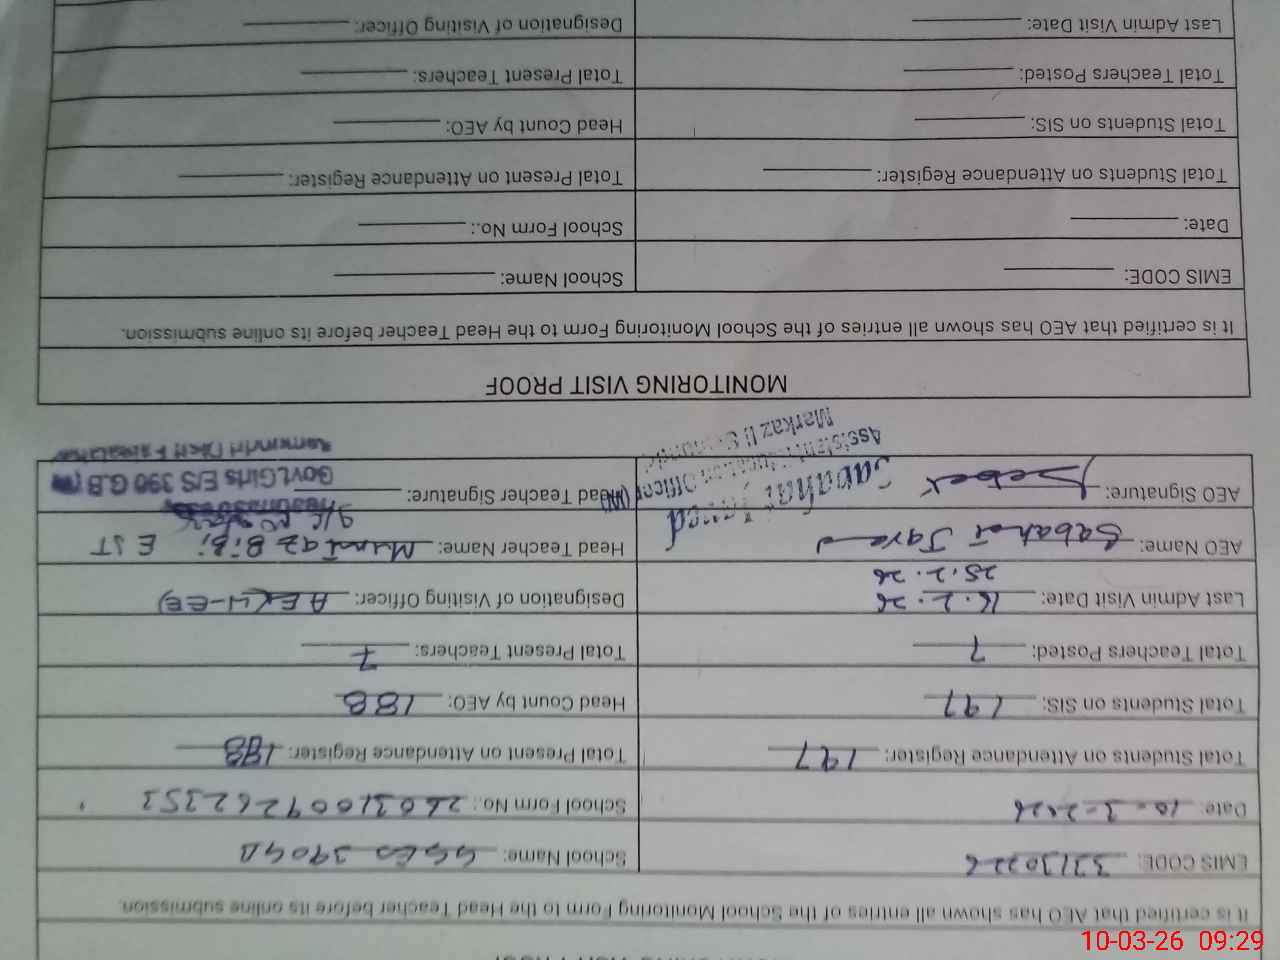 It is certified that AEO has shown all entries of the School Monitoring Form to the Head Teacher before its online submission.
EMIS CODE: 33130226 School Name: GGES 390GB
Date: 10-3-2026 School Form No.: 26031009262353
Total Students on Attendance Register: 197 Total Present on Attendance Register: 188
Total Students on SIS: 197 Head Count by AEO: 188
Total Teachers Posted: 7 Total Present Teachers: 7
Last Admin Visit Date: 16.2.26 Designation of Visiting Officer:
25.2.26
AEO Name: Sabahat Javed Head Teacher Name: Mumtaz BiBi EST
I/C
AEO Signature: Head Teacher Signature:
Sabahat Javed
Assistant Education Officer (W)
Markaz II
Govt.Girls E/S 390 G.B
MONITORING VISIT PROOF
It is certified that AEO has shown all entries of the School Monitoring Form to the Head Teacher before its online submission.
EMIS CODE: School Name:
Date: School Form No.:
Total Students on Attendance Register: Total Present on Attendance Register:
Total Students on SIS: Head Count by AEO:
Total Teachers Posted: Total Present Teachers:
Last Admin Visit Date: Designation of Visiting Officer:
10-03-26 09:29